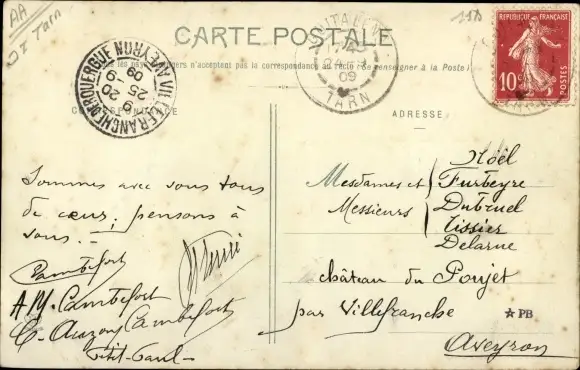 AA
DT Tarn
158
CARTE POSTALE
RÉPUBLIQUE FRANÇAISE
10c
POSTES
VILLEFRANCHE-DE-ROUERGUE AVEYRON
9
20
25
9
09
TARN
09
n'acceptent pas la correspondance au recto (Se renseigner à la Poste)
CORRESPONDANCE
ADRESSE
Sommes avec vous tous
de cœur; pensons à
vous.
Cambefort
Henri
A M. Cambefort
C. Auzouy Cambefort
Petit Paul
Noël
Mesdames et Furbeyre
Messieurs Dutruel
Tissier
Delarue
château du Poujet
par Villefranche
★ PB
Aveyron